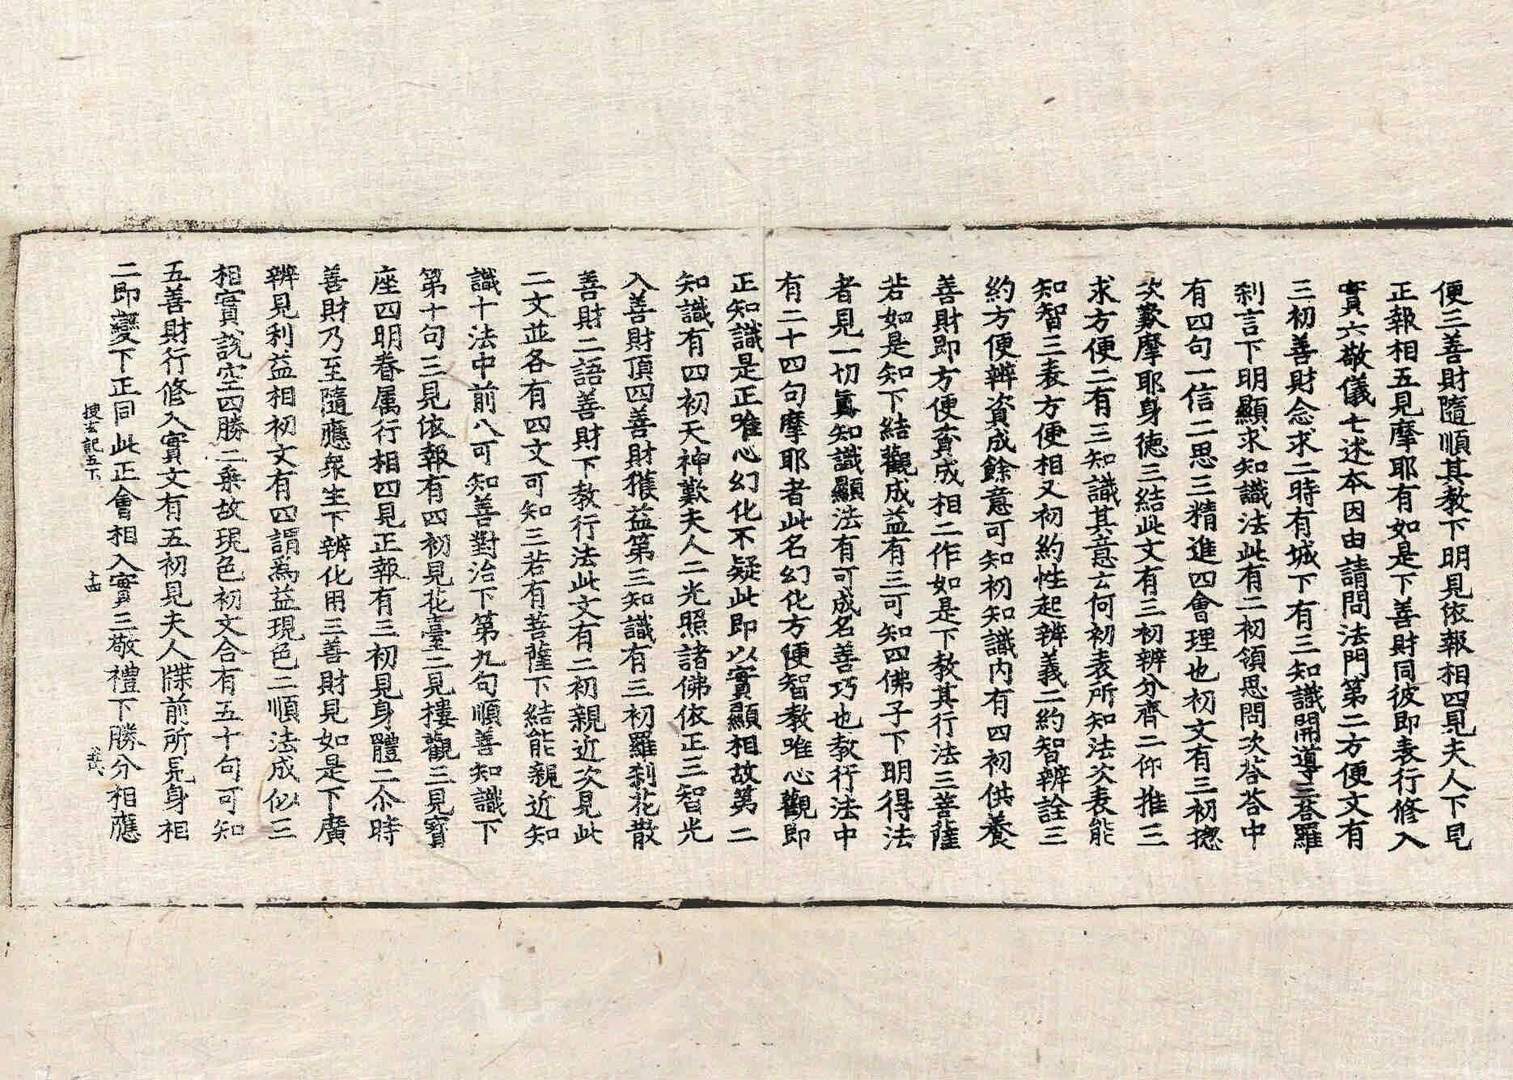 便三善財隨順其教下明見依報相四見夫人下見
正報相五見摩耶有如是下善財同彼即表行修入
實六敬儀七述本因由請問法門第二方便文有
三初善財念求二時有城下有三知識開導三答羅
刹言下明顯求知識法此有二初領思問次荅荅中
有四句一信二思三精進四會理也初文有三初揔
次歎摩耶身德三結此文有三初辨分齊二仰推三
求方便二有三知識其意云何初表所知法次表能
知智三表方便相又初約性起辨義二約智辨詮三
約方便辨資成餘意可知初知識內有四初供養
善財即方便資成相二作如是下教其行法三菩薩
若如是知下結觀成益有三可知四佛子下明得法
者見一切真知識顯法有可成名善巧也教行法中
有二十四句摩耶者此名幻化方便智教唯心觀即
正知識是正唯心幻化不疑此即以實顯相故第二
知識有四初天神歎夫人二光照諸佛依正三智光
入善財頂四善財獲益第三知識有三初羅刹花散
善財二語善財下教行法此文有二初親近次見此
二文並各有四文可知三若有菩薩下結能親近知
識十法中前八可知善對治下第九句順善知識下
第十句三見依報有四初見花臺二見樓觀三見寶
座四明眷属行相四見正報有三初見身體二尒時
善財乃至隨應衆生下辨化用三善財見如是下廣
辨見利益相初文有四謂為益現色二順法成似三
相實說空四勝二乘故現色初文合有五十句可知
五善財行修入實文有五初見夫人牒前所見身相
二即變下正同此正會相入實三敬禮下勝分相應
搜玄記五下 十四